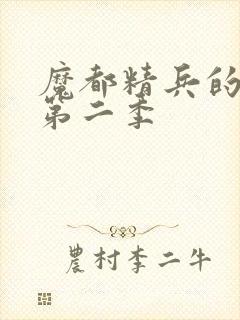 魔都精兵的
第二季
農村李二牛